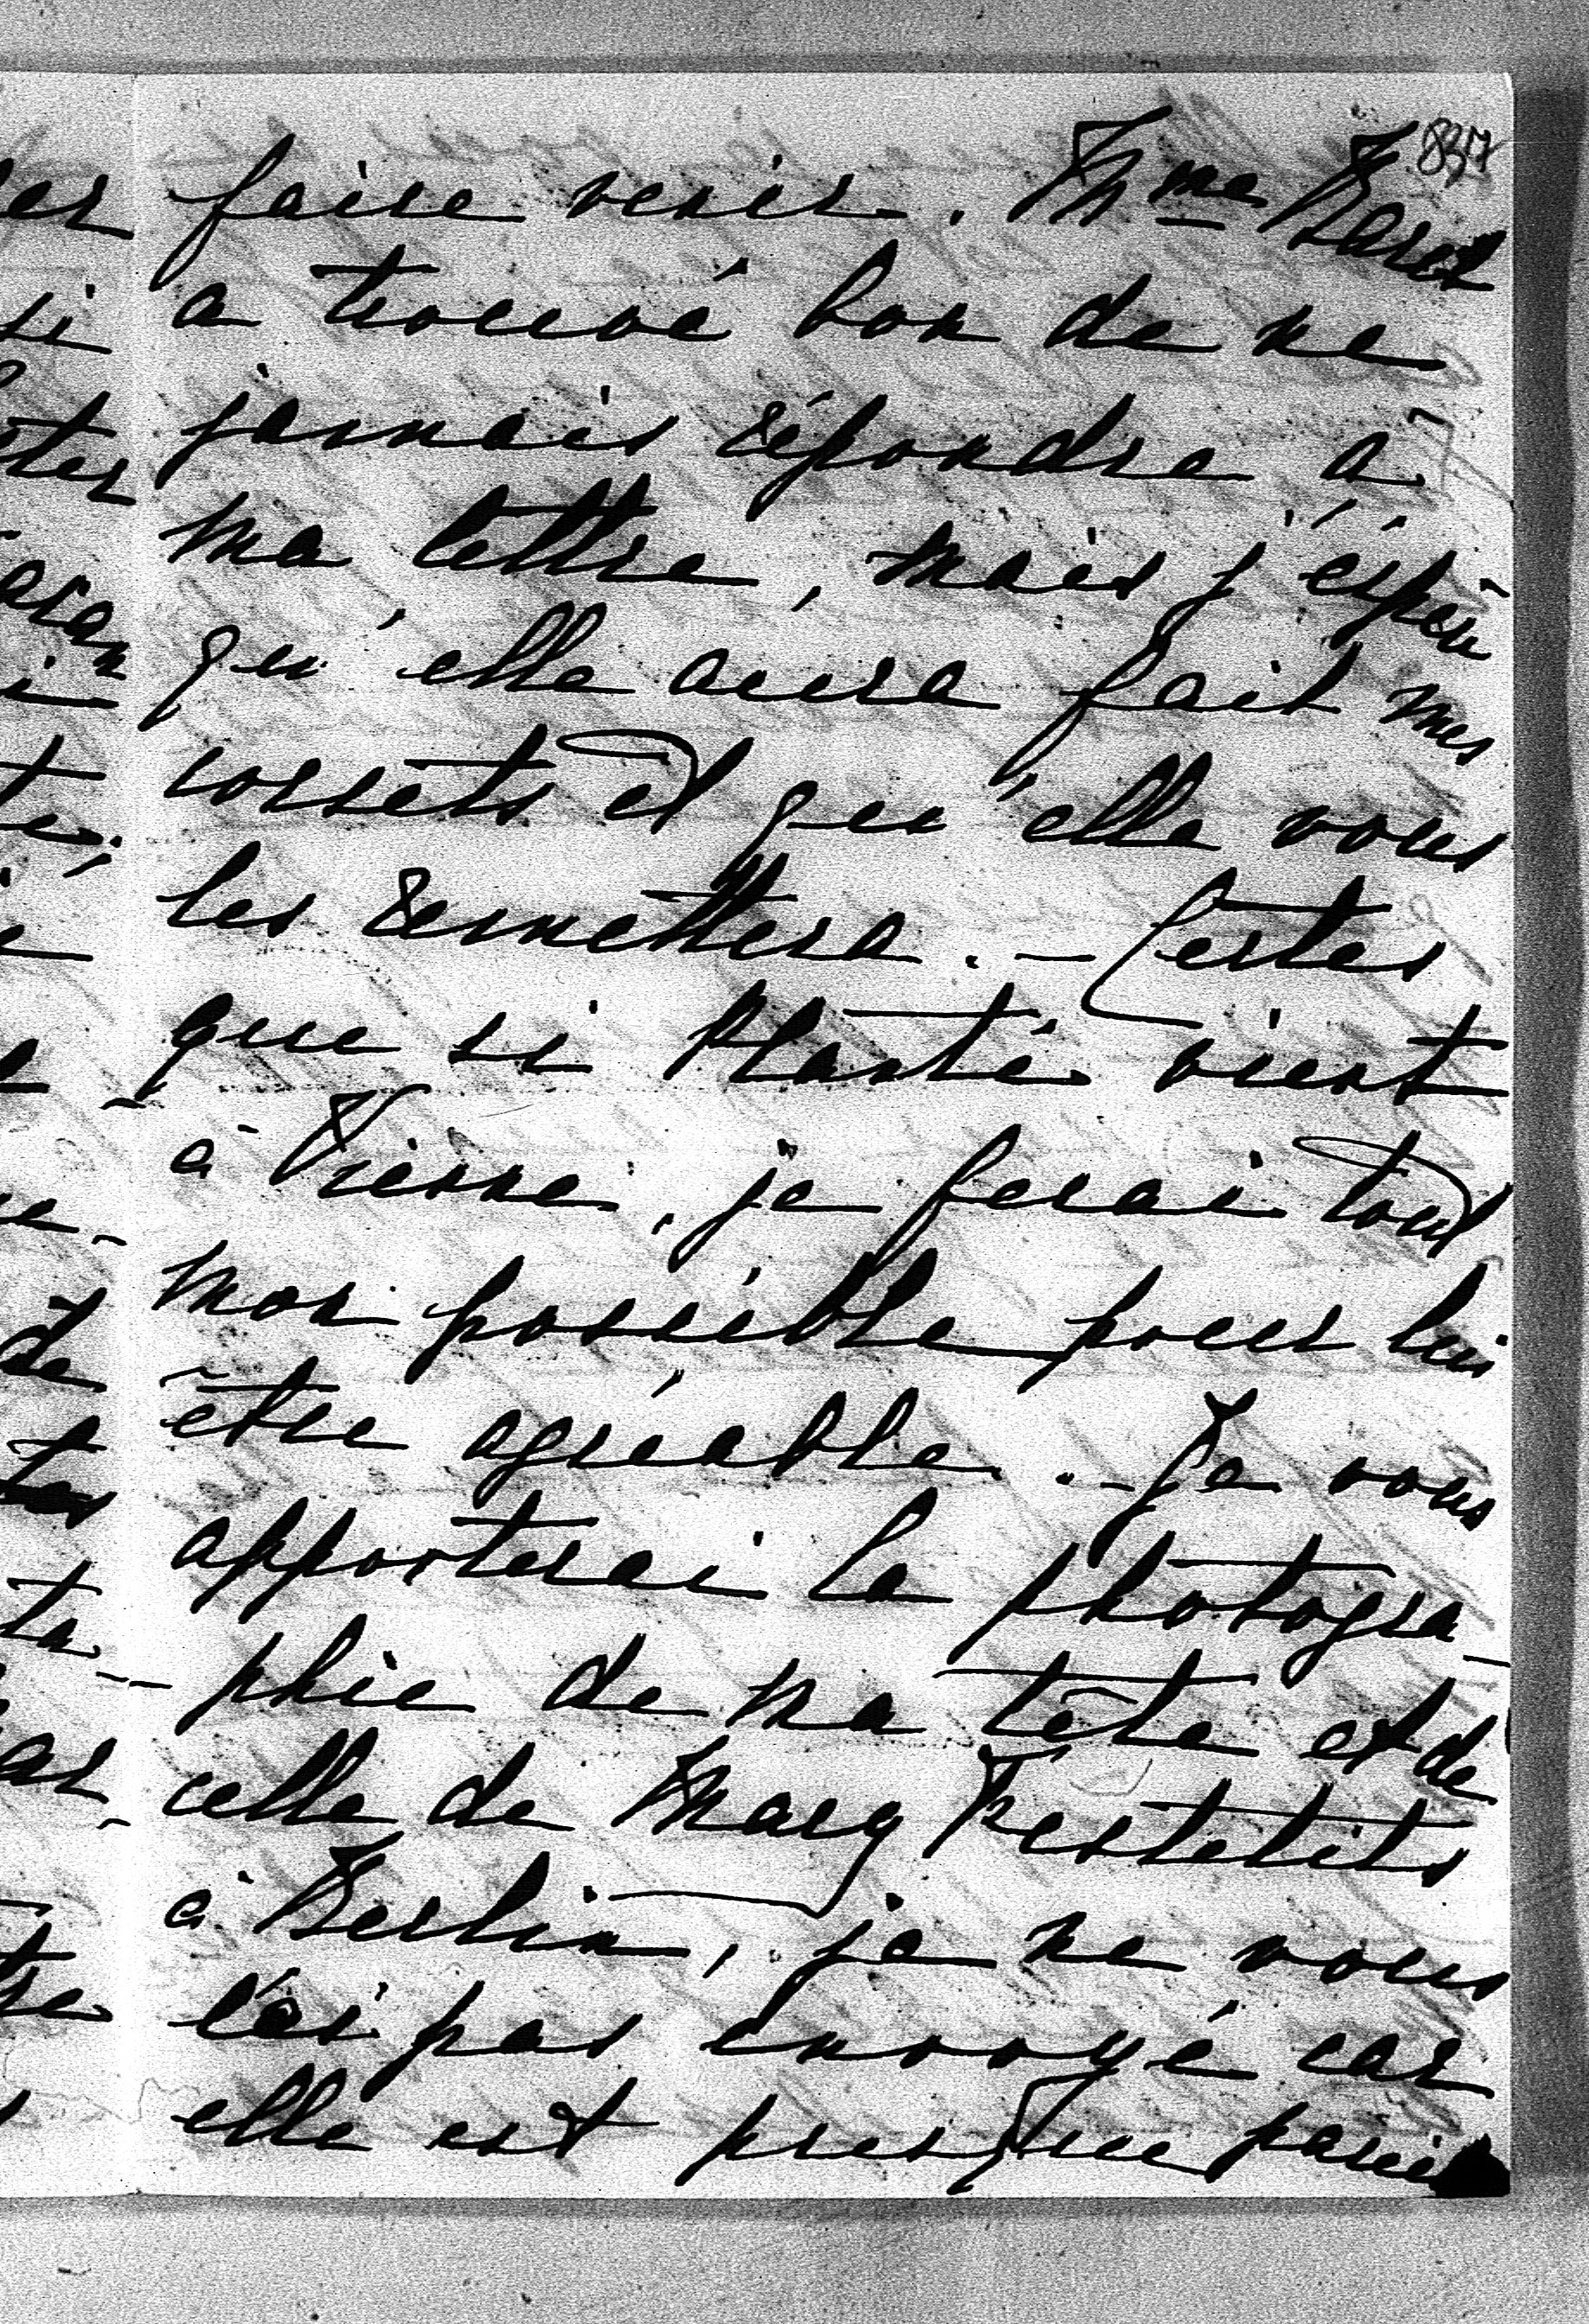 837
faire venir. Mme Baret
a trouvé bon de ne
jamais répondre à
ma lettre, mais j'éspère
qu'elle aura fait mes
corsets et qu'elle vous
les remettera. – Certes
que si Planté vient
à Vienne, je ferai tout
mon possible pour lui
être agréable. – Je vous
apporterai la photogra-
-phie de ma tête et de
celle de Mary Festetits
à Berlin, je ne vous
l'ai pas envoyé car
elle est presque